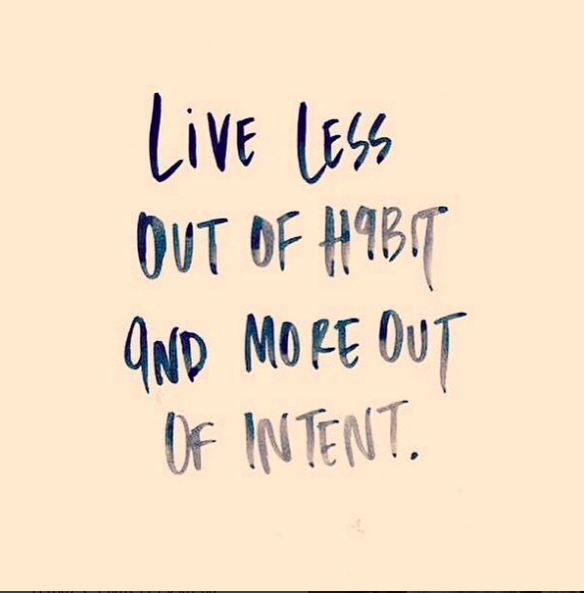 LiVE LESS
OUT OF HABIT
AND MORE OUT
OF INTENT.